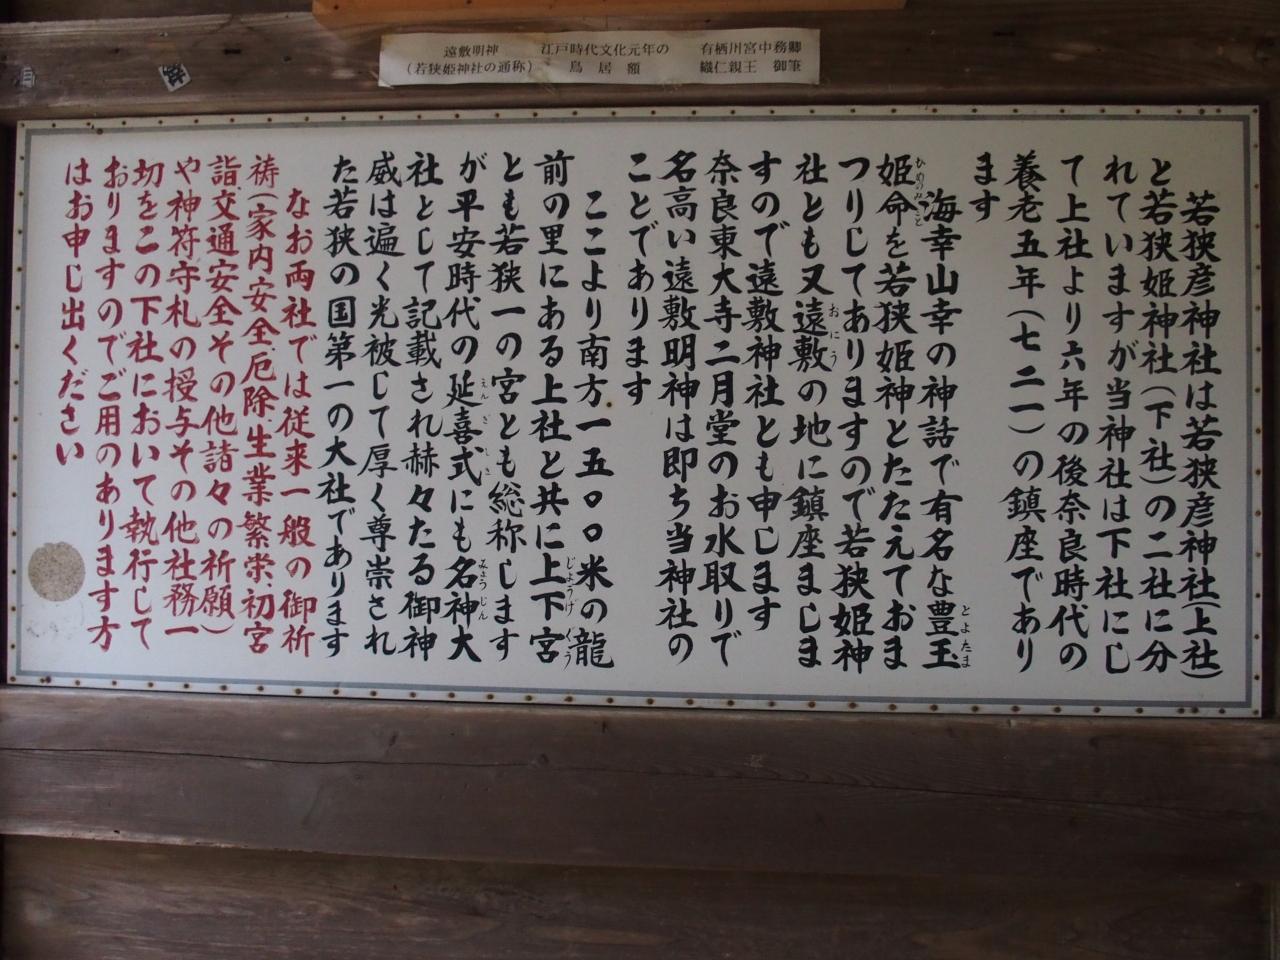 遠敷明神 江戸時代文化元年の 有栖川宮中務卿
(若狭姫神社の通称) 鳥居額 織仁親王 御筆
若狭彦神社は若狭彦神社(上社)
と若狭姫神社(下社)の二社に分
れていますが当神社は下社にし
て上社より六年の後奈良時代の
養老五年(七二一)の鎮座であり
ます
海幸山幸の神話で有名な豊玉
姫命を若狭姫神とたたえておま
つりしてありますので若狭姫神
社とも又遠敷の地に鎮座ましま
すので遠敷神社とも申します
奈良東大寺二月堂のお水取りで
名高い遠敷明神は即ち当神社の
ことであります
ここより南方一五〇〇米の龍
前の里にある上社と共に上下宮
とも若狭一の宮とも総称します
が平安時代の延喜式にも名神大
社として記載され赫々たる御神
威は遍く光被して厚く尊崇され
た若狭の国第一の大社であります
なお両社では従来一般の御祈
祷(家内安全厄除生業繁栄初宮
詣交通安全その他諸々の祈願)
や神符守札の授与その他社務一
切をこの下社において執行して
おりますのでご用のあります方
はお申し出ください